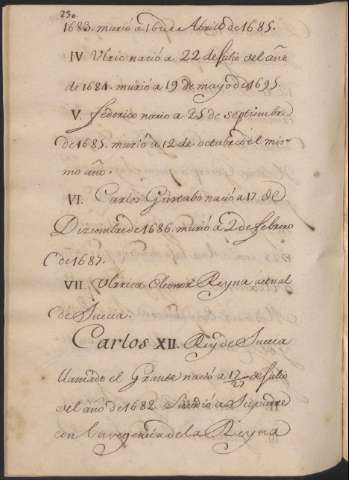 250
1683. murió á 16 de Abril de 1685.
IV Ulric nació a 22 de Julio del año
de 1684. murio á 19 de mayo de 1695.
V. Federico nacio a 25 de septiembre
de 1685. murió a 12 de octubre el mis
mo año.
VI. Carlos Gustabo nació a 17. de
Diziembre de 1686. murió a 2 de febrero
de 1687.
VII. Ulrica Eleonor Reyna actual
de Suecia.
Carlos XII. Rey de Suecia
llamado el Grande nació a 17/27 de Julio
del año de 1682
con la regencia de la Reyna